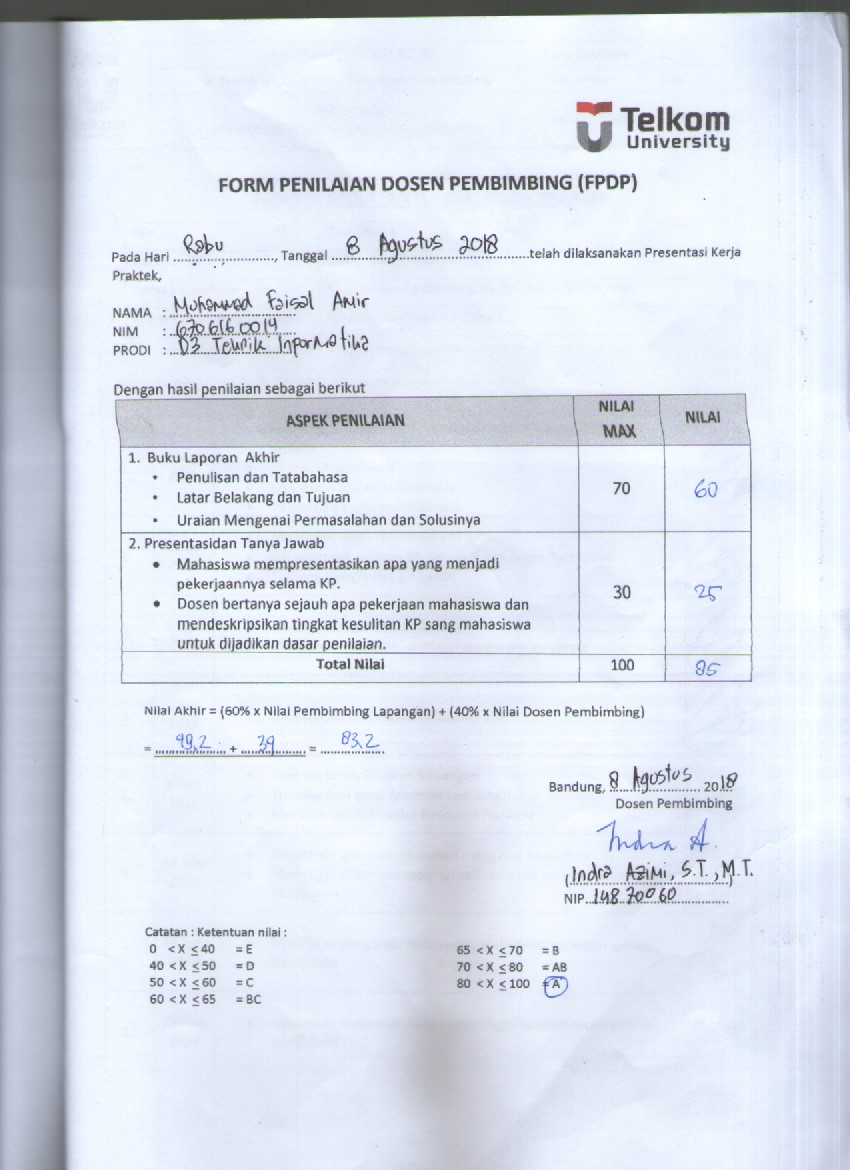 Telkom
University
FORM PENILAIAN DOSEN PEMBIMBING (FPDP)
Pada Hari Rabu, Tanggal 8 Agustus 2018 telah dilaksanakan Presentasi Kerja
Praktek,
NAMA : Muhammad Faisal Amir
NIM : 6706160014
PRODI : D3 Teknik Informatika
Dengan hasil penilaian sebagai berikut
ASPEK PENILAIAN NILAI MAX NILAI
1. Buku Laporan Akhir
• Penulisan dan Tatabahasa
• Latar Belakang dan Tujuan 70 60
• Uraian Mengenai Permasalahan dan Solusinya
2. Presentasidan Tanya Jawab
• Mahasiswa mempresentasikan apa yang menjadi
pekerjaannya selama KP. 30 25
• Dosen bertanya sejauh apa pekerjaan mahasiswa dan
mendeskripsikan tingkat kesulitan KP sang mahasiswa
untuk dijadikan dasar penilaian.
Total Nilai 100 85
Nilai Akhir = (60% x Nilai Pembimbing Lapangan) + (40% x Nilai Dosen Pembimbing)
= 49,2 + 34 = 83,2
Bandung, 8 Agustus 2018
Dosen Pembimbing
Indra A.
(Indra Azimi, S.T., M.T.
NIP. 14870060
Catatan : Ketentuan nilai :
0 < X ≤ 40 = E
40 < X ≤ 50 = D
50 < X ≤ 60 = C
60 < X ≤ 65 = BC
65 < X ≤ 70 = B
70 < X ≤ 80 = AB
80 < X ≤ 100 = A